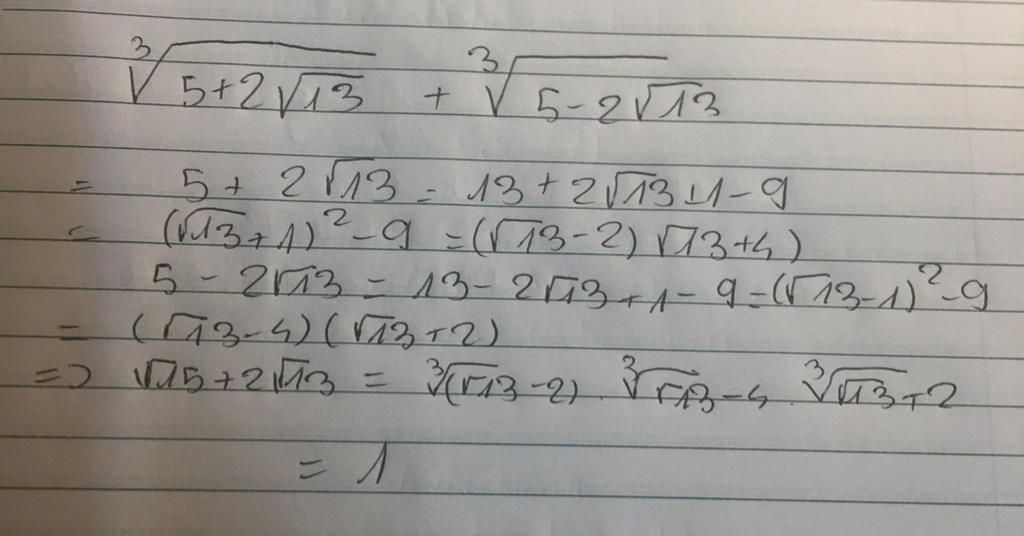 ∛(5+2√13) + ∛(5-2√13)
= 5 + 2√13 = 13 + 2√13 + 1 - 9
= (√13 + 1)² - 9 = (√13 - 2) √13 + 4)
5 - 2√13 = 13 - 2√13 + 1 - 9 = (√13 - 1)² - 9
= (√13 - 4) (√13 + 2)
=> √15 + 2√13 = ∛(√13 - 2) . ∛√13 - 4 . ∛√13 + 2
= 1